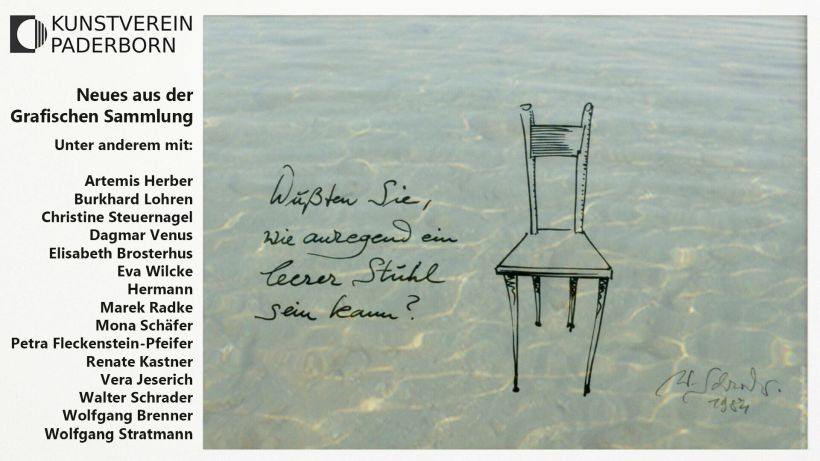 KUNSTVEREIN
PADERBORN
Neues aus der
Grafischen Sammlung
Unter anderem mit:
Artemis Herber
Burkhard Lohren
Christine Steuernagel
Dagmar Venus
Elisabeth Brosterhus
Eva Wilcke
Hermann
Marek Radke
Mona Schäfer
Petra Fleckenstein-Pfeifer
Renate Kastner
Vera Jeserich
Walter Schrader
Wolfgang Brenner
Wolfgang Stratmann
Wußten Sie,
wie anregend ein
leerer Stuhl
sein kann?
W. Schrader
1984